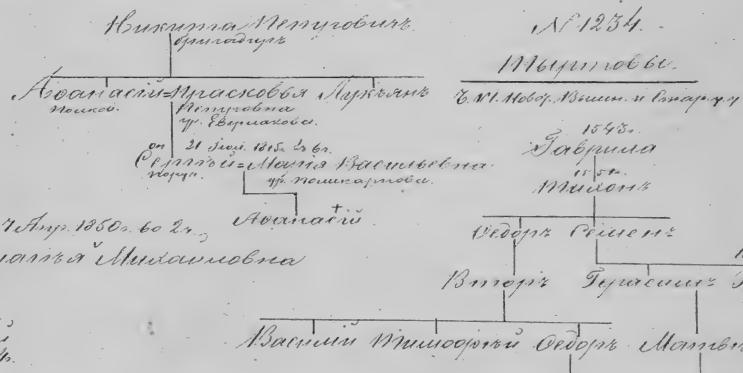 Никита Петровичъ
бригадиръ
Аѳанасій = Прасковья Лукьянъ
полков. Петровна
ур. Евдлакова.
ум. 21 1815. 26 г.
Сергѣй = Марія Васильевна
поруч. ур. Поликарпова.
Аѳанасій +
7 Апр. 1850 г. 60 2 г.
Михаиловна
№ 1234.
Тыртовы.
Б. VI. Новг. Вышн. и Стариц
1545 г.
Гаврила
155
Тихонъ
Ѳедоръ Семенъ
Вторъ Герасимъ
Василій Тимоѳей Ѳедоръ Матвѣ